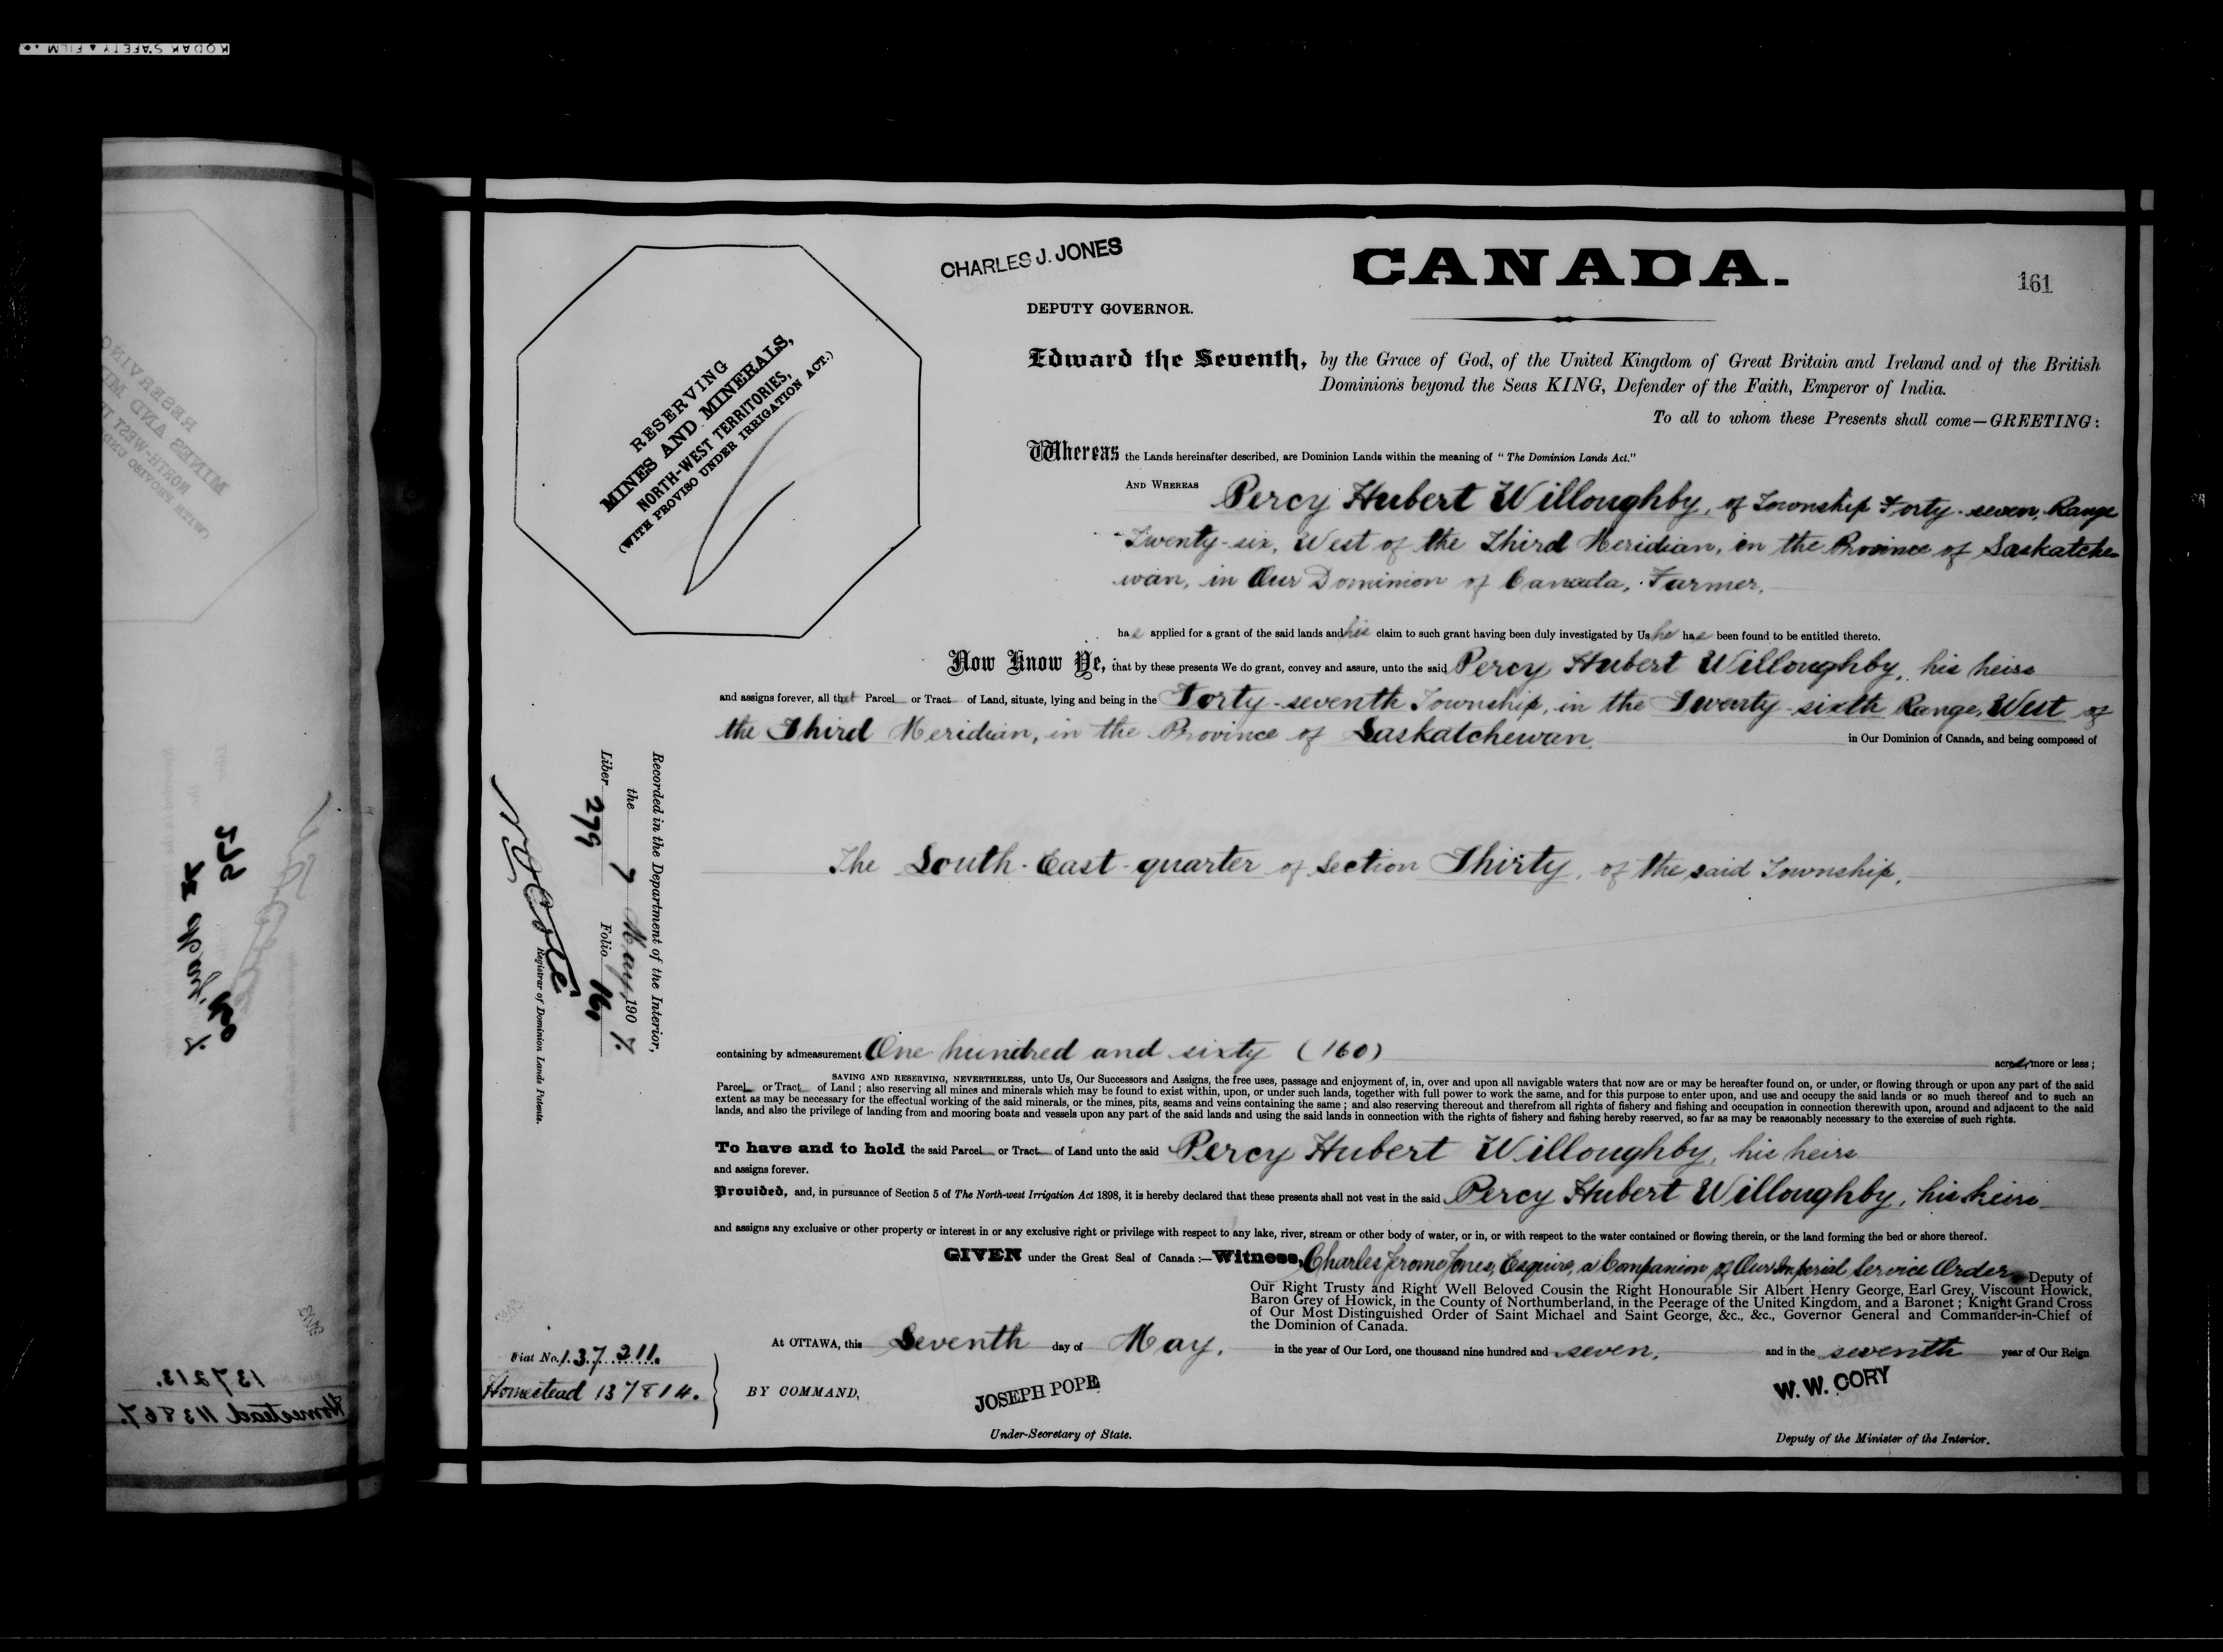 KODAK SAFETY ▲ FILM
CHARLES J. JONES
CANADA.
161
DEPUTY GOVERNOR.
RESERVING
MINES AND MINERALS,
NORTH-WEST TERRITORIES,
(WITH PROVISO UNDER IRRIGATION ACT.)
Edward the Seventh, by the Grace of God, of the United Kingdom of Great Britain and Ireland and of the British
Dominions beyond the Seas KING, Defender of the Faith, Emperor of India.
To all to whom these Presents shall come—GREETING:
Whereas the Lands hereinafter described, are Dominion Lands within the meaning of "The Dominion Lands Act."
AND WHEREAS Percy Hubert Willoughby, of Township Forty-seven, Range
Twenty-six, West of the Third Meridian, in the Province of Saskatche-
wan, in Our Dominion of Canada, Farmer,
has applied for a grant of the said lands and his claim to such grant having been duly investigated by Us he has been found to be entitled thereto.
Now Know Ye, that by these presents We do grant, convey and assure, unto the said Percy Hubert Willoughby, his heirs
and assigns forever, all that Parcel or Tract of Land, situate, lying and being in the Forty-seventh Township, in the Twenty-sixth Range, West of
the Third Meridian, in the Province of Saskatchewan in Our Dominion of Canada, and being composed of
The South-East-quarter of Section Thirty, of the said Township,
Recorded in the Department of the Interior,
the 7 May, 1907.
Liber 279 Folio
Registrar of Dominion Lands Patents.
containing by admeasurement One hundred and sixty (160) acres, more or less;
SAVING AND RESERVING, NEVERTHELESS, unto Us, Our Successors and Assigns, the free uses, passage and enjoyment of, in, over and upon all navigable waters that now are or may be hereafter found on, or under, or flowing through or upon any part of the said
Parcel or Tract of Land; also reserving all mines and minerals which may be found to exist within, upon, or under such lands, together with full power to work the same, and for this purpose to enter upon, and use and occupy the said lands or so much thereof and to such an
extent as may be necessary for the effectual working of the said minerals, or the mines, pits, seams and veins containing the same; and also reserving thereout and therefrom all rights of fishery and fishing and occupation in connection therewith upon, around and adjacent to the said
lands, and also the privilege of landing from and mooring boats and vessels upon any part of the said lands and using the said lands in connection with the rights of fishery and fishing hereby reserved, so far as may be reasonably necessary to the exercise of such rights.
To have and to hold the said Parcel or Tract of Land unto the said Percy Hubert Willoughby, his heirs
and assigns forever.
Provided, and, in pursuance of Section 5 of The North-west Irrigation Act 1898, it is hereby declared that these presents shall not vest in the said Percy Hubert Willoughby, his heirs
and assigns any exclusive or other property or interest in or any exclusive right or privilege with respect to any lake, river, stream or other body of water, or in, or with respect to the water contained or flowing therein, or the land forming the bed or shore thereof.
GIVEN under the Great Seal of Canada:—Witness, Charles Jerome Jones, Esquire, a Companion of Our Imperial Service Order, Deputy of
Our Right Trusty and Right Well Beloved Cousin the Right Honourable Sir Albert Henry George, Earl Grey, Viscount Howick,
Baron Grey of Howick, in the County of Northumberland, in the Peerage of the United Kingdom, and a Baronet; Knight Grand Cross
of Our Most Distinguished Order of Saint Michael and Saint George, &c., &c., Governor General and Commander-in-Chief of
the Dominion of Canada.
At OTTAWA, this Seventh day of May, in the year of Our Lord, one thousand nine hundred and seven, and in the seventh year of Our Reign.
Fiat No. 137211.
Homestead 137814.
BY COMMAND,
JOSEPH POPE
Under-Secretary of State.
W. W. CORY
Deputy of the Minister of the Interior.
137213.
Homestead 113867.